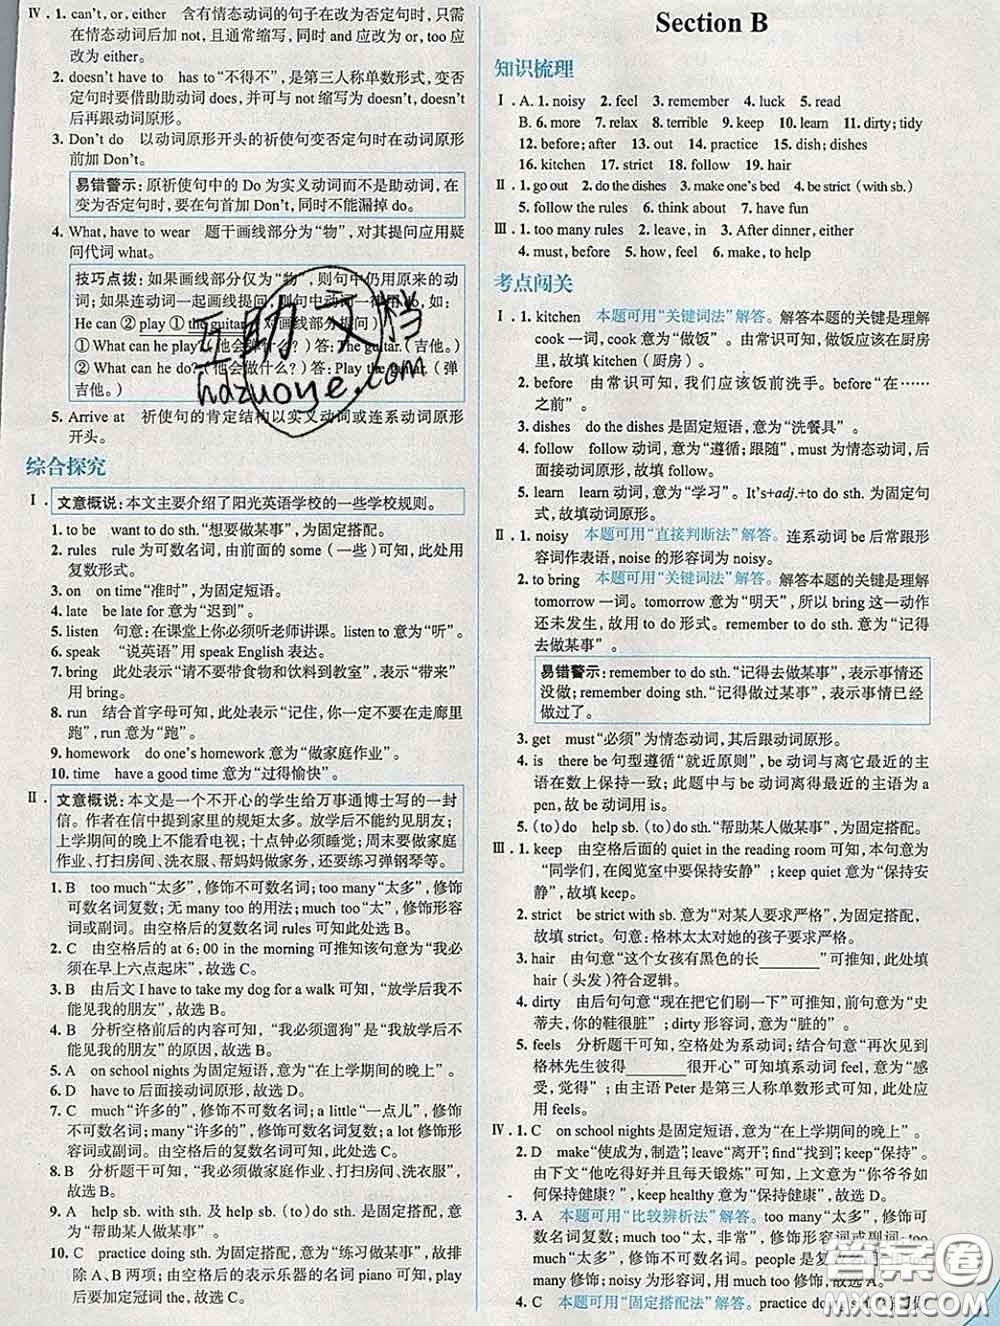 Ⅳ. 1. can't, or, either　含有情态动词的句子在改为否定句时,只需
在情态动词后加 not, 且通常缩写, 同时 and 应改为 or, too 应
改为 either.
2. doesn't have to　has to “不得不”, 是第三人称单数形式, 变否
定句时要借助助动词 does, 并可与 not 缩写为 doesn't, doesn't
后再跟动词原形。
3. Don't do　以动词原形开头的祈使句变否定句时在动词原形
前加 Don't。
易错警示: 原祈使句中的 Do 为实义动词而不是助动词, 在
变为否定句时, 要在句首加 Don't, 同时不能漏掉 do。
4. What, have to wear　题干画线部分为“物”, 对其提问应用疑
问代词 what。
技巧点拨: 如果画线部分仅为“物”, 则句中仍用原来的动
词; 如果连动词一起画线提问, 则句中动词一律用 do, 如:
He can ② play ① the guitar. (对画线部分提问)
① What can he play? (他会弹什么?) 答: The guitar. (吉他。)
② What can he do? (他会做什么?) 答: Play the guitar. (弹
吉他。)
5. Arrive at　祈使句的肯定结构以实义动词或连系动词原形
开头。
综合探究
Ⅰ. 文意概说: 本文主要介绍了阳光英语学校的一些学校规则。
1. to be　want to do sth. “想要做某事”, 为固定搭配。
2. rules　rule 为可数名词, 由前面的 some (一些) 可知, 此处用
复数形式。
3. on　on time “准时”, 为固定短语。
4. late　be late for 意为“迟到”。
5. listen　句意: 在课堂上你必须听老师讲课。listen to 意为“听”。
6. speak　“说英语”用 speak English 表达。
7. bring　此处表示“请不要带食物和饮料到教室”, 表示“带来”
用 bring。
8. run　结合首字母可知, 此处表示“记住, 你一定不要在走廊里
跑”, run 意为“跑”。
9. homework　do one's homework 意为“做家庭作业”。
10. time　have a good time 意为“过得愉快”。
Ⅱ. 文意概说: 本文是一个不开心的学生给万事通博士写的一封
信。作者在信中提到家里的规矩太多。放学后不能约见朋友;
上学期间的晚上不能看电视; 十点钟必须睡觉; 周末要做家庭
作业、打扫房间、洗衣服、帮妈妈做家务, 还要练习弹钢琴等。
1. B　too much “太多”, 修饰不可数名词; too many “太多”, 修饰
可数名词复数; 无 many too 的用法; much too “太”, 修饰形容
词或副词。由空格后的复数名词 rules 可知此处选 B。
2. C　由空格后的 at 6:00 in the morning 可推知该句意为“我必
须在早上六点起床”, 故选 C。
3. B　由后文 I have to take my dog for a walk 可知, “放学后我不
能见我的朋友”, 故选 B。
4. B　分析空格前后的内容可知, “我必须遛狗”是“我放学后不
能见我的朋友”的原因, 故选 B。
5. A　on school nights 为固定短语, 意为“在上学期间的晚上”。
6. D　have to 后面接动词原形, 故选 D。
7. C　much “许多的”, 修饰不可数名词; a little “一点儿”, 修饰不可
数名词; many “许多的”, 修饰可数名词复数; a lot 修饰形容
词或副词原形, 故选 C。
8. B　分析题干可知, “我必须做家庭作业、打扫房间、洗衣服”,
故选 B。
9. A　help sb. with sth. 及 help sb. (to) do sth. 为固定搭配, 意
为“帮助某人做某事”。
10. C　practice doing sth. 为固定搭配, 意为“练习做某事”, 故排
除 A、B 两项; 由空格后的表示乐器的名词 piano 可知, play
后要加定冠词 the, 故选 C。
Section B
知识梳理
Ⅰ. A. 1. noisy　2. feel　3. remember　4. luck　5. read
B. 6. more　7. relax　8. terrible　9. keep　10. learn　11. dirty; tidy
12. before; after　13. out　14. practice　15. dish; dishes
16. kitchen　17. strict　18. follow　19. hair
Ⅱ. 1. go out　2. do the dishes　3. make one's bed　4. be strict (with sb.)
5. follow the rules　6. think about　7. have fun
Ⅲ. 1. too many rules　2. leave, in　3. After dinner, either
4. must, before　5. how, feel　6. make, to help
考点闯关
Ⅰ. 1. kitchen　本题可用“关键词法”解答。解答本题的关键是理解
cook 一词, cook 意为“做饭”。由常识可知, 做饭应该在厨房
里, 故填 kitchen (厨房)。
2. before　由常识可知, 我们应该饭前洗手。before “在……
之前”。
3. dishes　do the dishes 是固定短语, 意为“洗餐具”。
4. follow　follow 动词, 意为“遵循; 跟随”, must 为情态动词, 后
面接动词原形, 故填 follow。
5. learn　learn 动词, 意为“学习”。It's+adj.+to do sth. 为固定句
式, 故填动词原形。
Ⅱ. 1. noisy　本题可用“直接判断法”解答。连系动词 be 后常跟形
容词作表语, noise 的形容词为 noisy。
2. to bring　本题可用“关键词法”解答。解答本题的关键是理解
tomorrow 一词。tomorrow 意为“明天”, 所以 bring 这一动作
还未发生, 故用 to do 形式。remember to do sth. 意为“记得
去做某事”。
易错警示: remember to do sth. “记得去做某事”, 表示事情还
没做; remember doing sth. “记得做过某事”, 表示事情已经
做过了。
3. get　must “必须”为情态动词, 其后跟动词原形。
4. is　there be 句型遵循“就近原则”, be 动词与离它最近的主
语在数上保持一致; 此题中与 be 动词离得最近的主语为 a
pen, 故 be 动词用 is。
5. (to) do　help sb. (to) do sth. “帮助某人做某事”, 为固定搭配。
Ⅲ. 1. keep　由空格后面的 quiet in the reading room 可知, 本句意为
“同学们, 在阅览室中要保持安静”; keep quiet 意为“保持安
静”, 故填 keep。
2. strict　be strict with sb. 意为“对某人要求严格”, 为固定搭配,
故填 strict。句意: 格林太太对她的孩子要求严格。
3. hair　由句意“这个女孩有黑色的长______”可知, 此处填
hair (头发) 符合逻辑。
4. dirty　由后句句意“现在把它们刷一下”可推知, 前句意为“史
蒂夫, 你的鞋很脏”; dirty 形容词, 意为“脏的”。
5. feels　分析题干可知, 空格处为系动词; 结合句意“再次见到
格林先生彼得______很开心”可知填系动词 feel, 意为“感
受, 觉得”; 由主语 Peter 是第三人称单数形式可知, 此处应
用 feels。
Ⅳ. 1. C　on school nights 是固定短语, 意为“在上学期间的晚上”。
2. D　make “使成为, 制造”; leave “离开”; find “找到”; keep “保持”。
由下文“他吃得好并且每天锻炼”可知, 上文意为“你爷爷如
何保持健康?”, keep healthy 意为“保持健康”, 故选 D。
3. A　本题可用“比较辨析法”解答。too many “太多”, 修饰可数
名词复数; much too “太, 非常”, 修饰形容词或副词; too
much “太多”, 修饰不可数名词。people 是复
填 too many; noisy 为形容词, 用 much too 修饰, 故选 A。
4. C　本题可用“固定搭配法”解答。practice doing sth.
互助文档
hdzuoye.com
答案圈